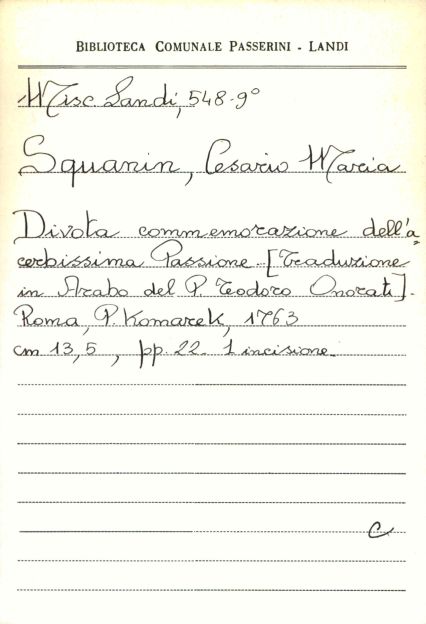 BIBLIOTECA COMUNALE PASSERINI - LANDI
Misc. Landi, 548-9°
Squanin, Cesario Maria
Divota commemorazione dell'a=
cerbissima Passione [Traduzione
in Arabo del P. Teodoro Onorati].
Roma, P. Komarek, 1763
cm 13,5, pp. 22. 1 incisione.
C